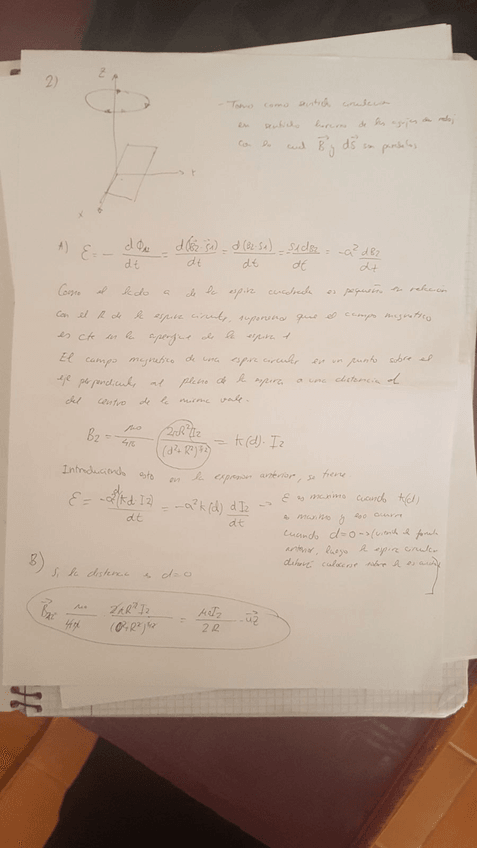 2)
Z
Y
X
- Tomo como sentido
en sentido horario de las agujas del reloj,
con lo cual B⃗ y dS⃗ son paralelos
A) ε = - dΦ/dt = d(B⃗2·S⃗1)/dt = d(B2·S1)/dt = S1 dB2/dt = -a² dB2/dt
Como el lado a de la espira cuadrada es pequeño en relación
con el R de la espira circular, suponemos que el campo magnético
es cte en la superficie de la espira 1
El campo magnético de una espira circular en un punto sobre el
eje perpendicular al plano de la espira a una distancia d
del centro de la misma vale.
B2 = μ0/4π 2πR²I2/(d²+R²)^3/2 = K(d)·I2
Introduciendo esto en la expresión anterior, se tiene
ε = -a² d(Kd I2)/dt = -a² K(d) dI2/dt → ε es máximo cuando K(d)
es máximo y eso ocurre
cuando d=0 → (viendo la fórmula
anterior, luego la espira circular
colocarse sobre la
B)
Si la distancia es d=0
μ0/4π 2πR²I2/(0²+R²)^3/2 = μ0I2/2R · u⃗z